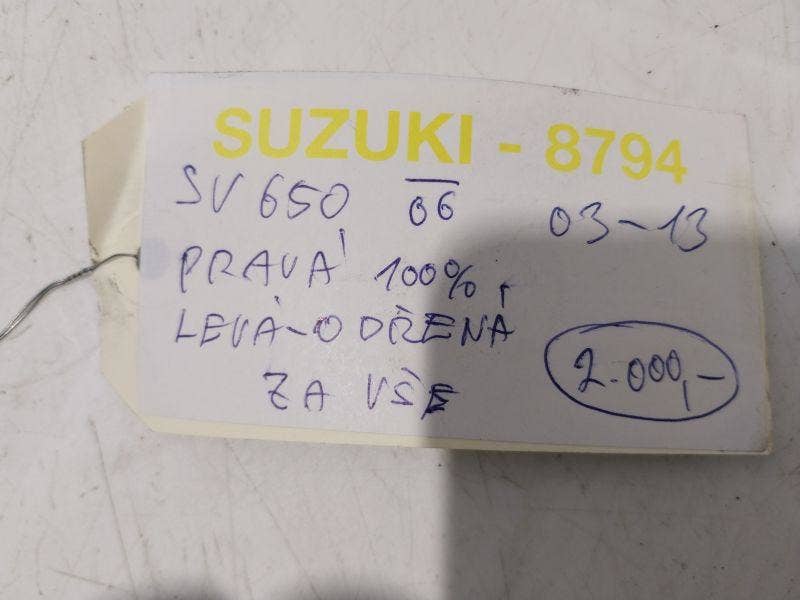 SUZUKI - 8794
SV 650 06 03-13
PRAVÁ 100%,
LEVÁ-ODŘENÁ
ZA VŠE 2.000,-